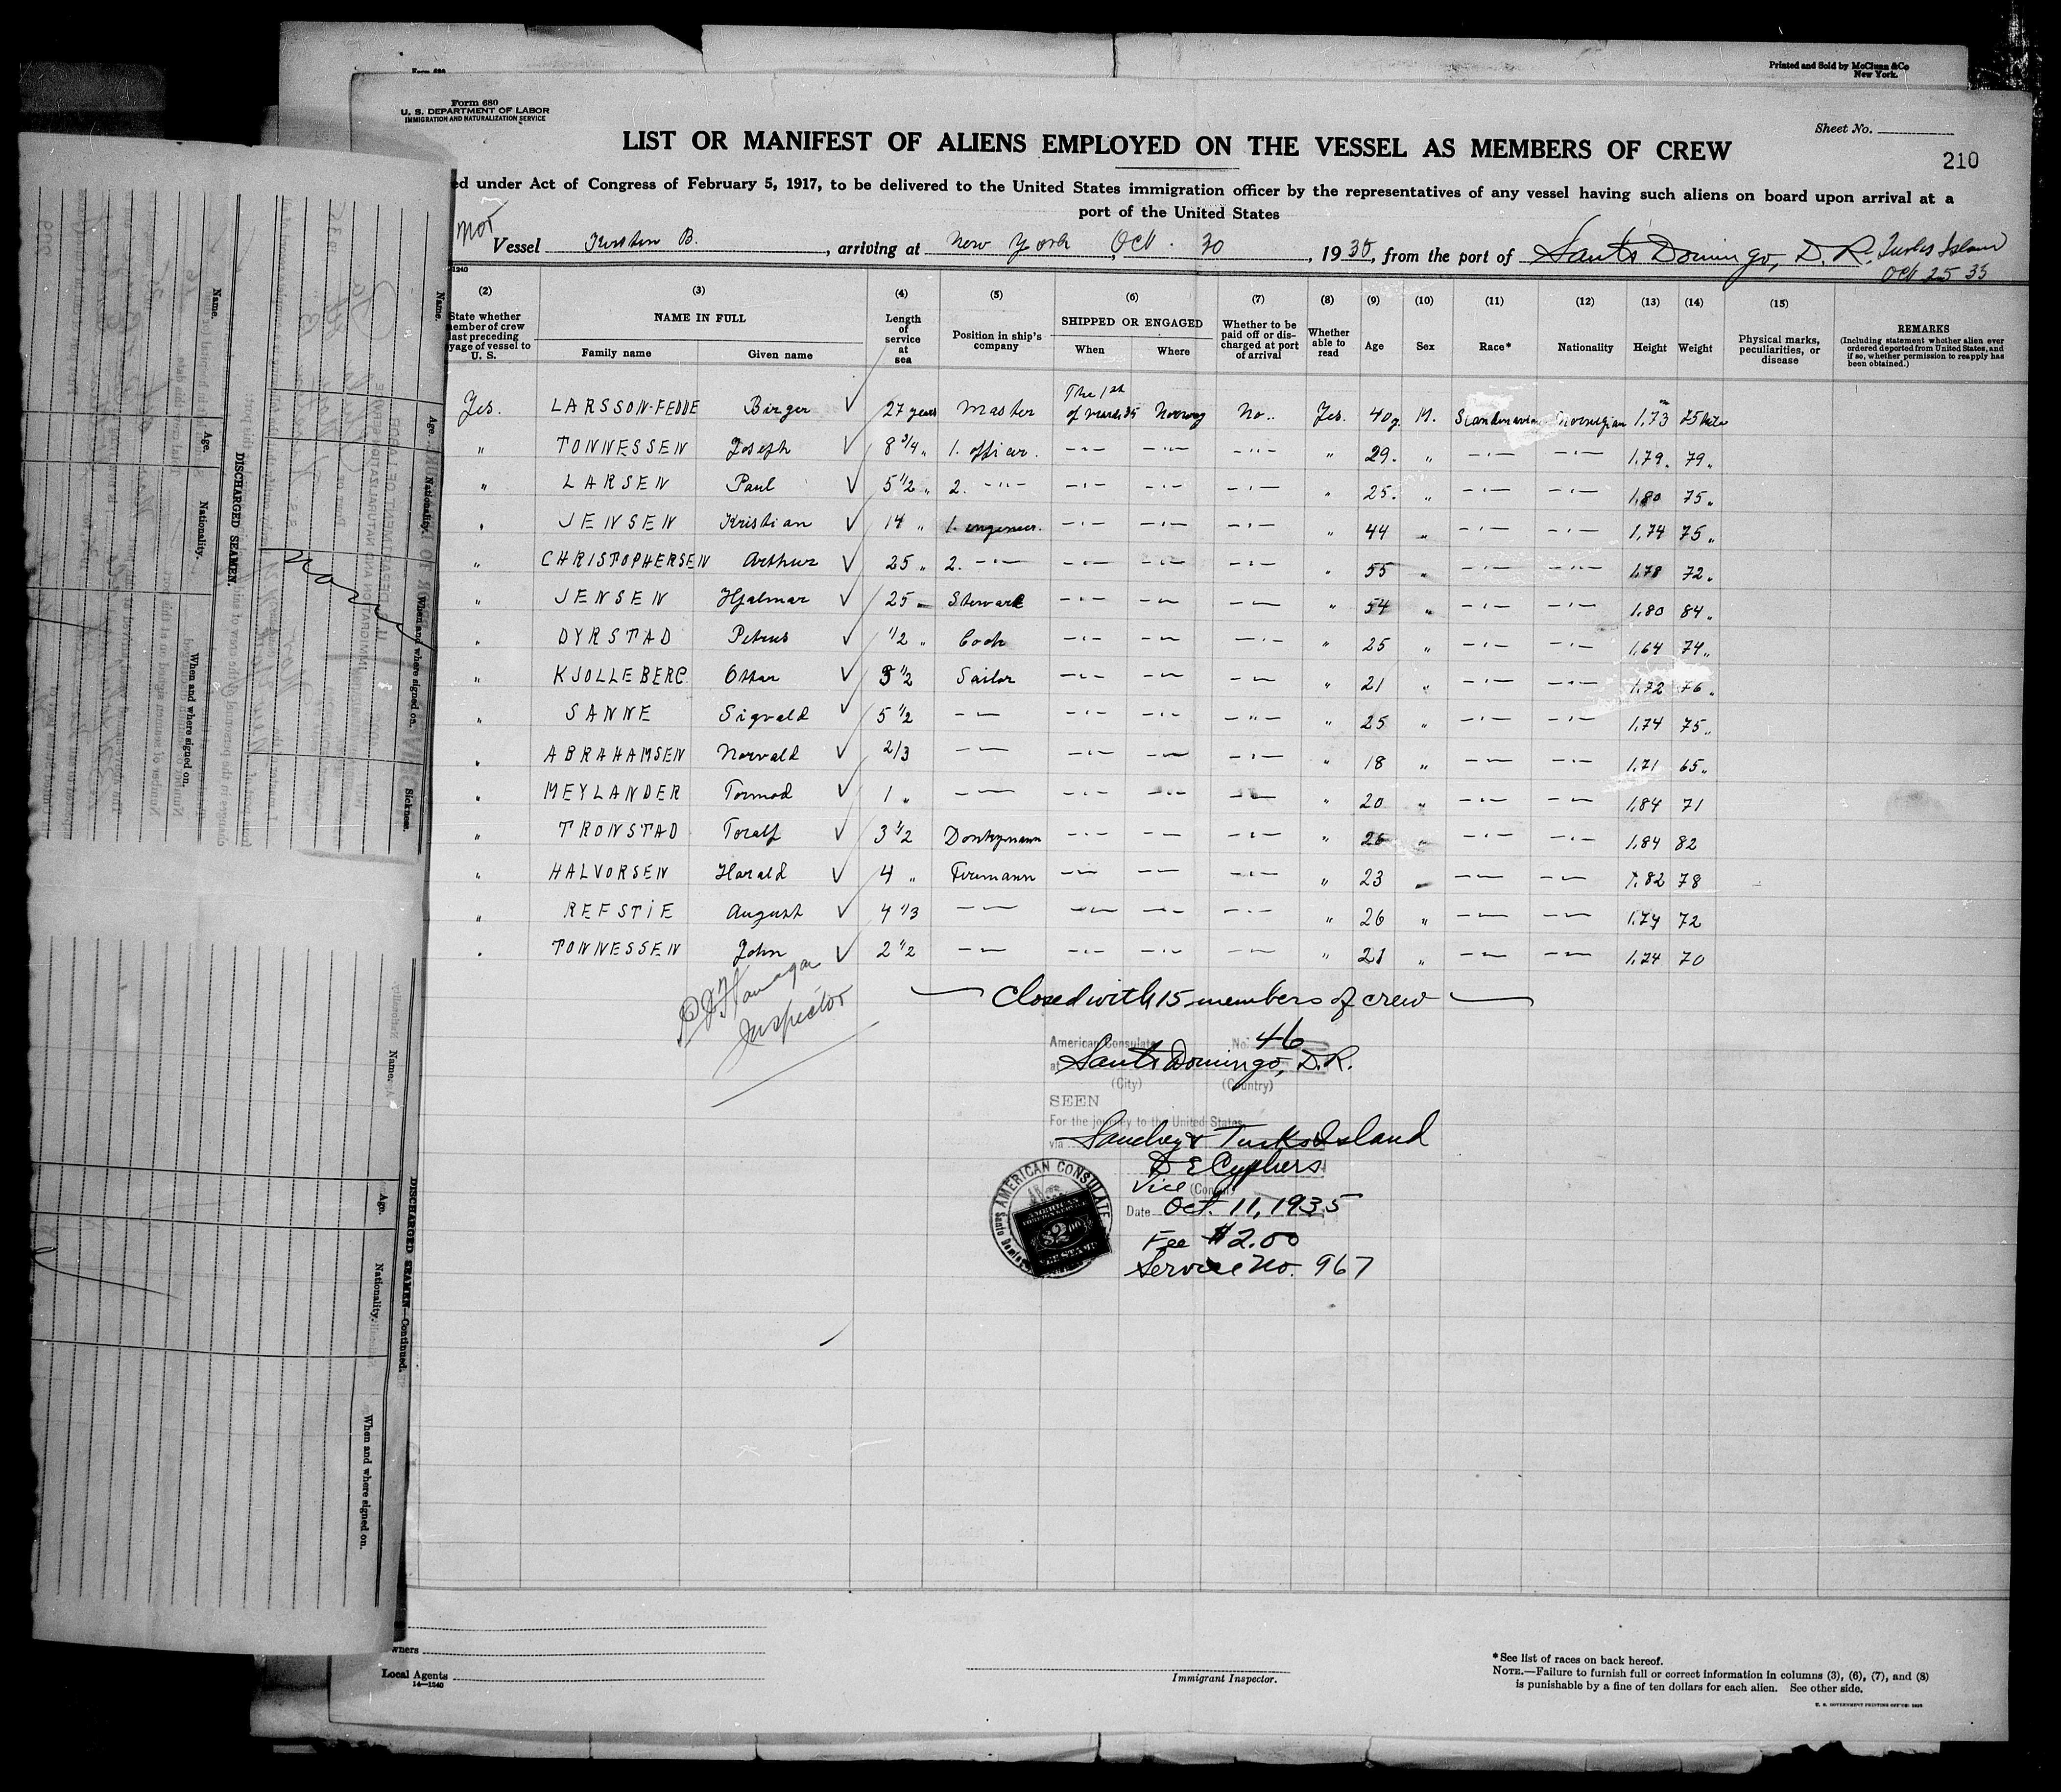 Printed and Sold by McClunn & Co
New York.
Form 680
U. S. DEPARTMENT OF LABOR
IMMIGRATION AND NATURALIZATION SERVICE
Sheet No.
LIST OR MANIFEST OF ALIENS EMPLOYED ON THE VESSEL AS MEMBERS OF CREW
210
ed under Act of Congress of February 5, 1917, to be delivered to the United States immigration officer by the representatives of any vessel having such aliens on board upon arrival at a
port of the United States
Vessel Kirsten B. , arriving at New York , Oct. 30 , 1935, from the port of Santo Domingo, D. R. Turks Island
Oct 25 35
(2) State whether member of crew last preceding voyage of vessel to U. S.
(3) NAME IN FULL Family name Given name
(4) Length of service at sea
(5) Position in ship's company
(6) SHIPPED OR ENGAGED When Where
(7) Whether to be paid off or discharged at port of arrival
(8) Whether able to read
(9) Age
(10) Sex
(11) Race*
(12) Nationality
(13) Height
(14) Weight
(15) Physical marks, peculiarities, or disease
REMARKS (Including statement whether alien ever ordered deported from United States, and if so, whether permission to reapply has been obtained.)
Yes. LARSSON-FEDDE Birger ✓ 27 years Master The 1st of March 35 Norway No.. Yes. 40 y. M. Scandinavian Norwegian 1,73 75 kilo
" TONNESSEN Joseph ✓ 8 3/4 " 1. officer. —"— —"— —"— " 29. " —"— —"— 1,79. 79 "
" LARSEN Paul ✓ 5 1/2 " 2. —"— —"— —"— —"— " 25. " —"— —"— 1,80 75 "
" JENSEN Kristian ✓ 14 " 1. engineer. —"— —"— —"— " 44 " —"— —"— 1,74 75 "
" CHRISTOPHERSEN Arthur ✓ 25 " 2. —"— —"— —"— —"— " 55 " —"— —"— 1,78 72 "
" JENSEN Hjalmar ✓ 25 " Steward —"— —"— —"— " 54 " —"— —"— 1,80 84 "
" DYRSTAD Petrus ✓ 1/2 " Cook —"— —"— —"— " 25 " —"— —"— 1,64 74 "
" KJOLLEBERG Ottar ✓ 3 1/2 Sailor —"— —"— —"— " 21 " —"— —"— 1,72 76 "
" SANNE Sigvald ✓ 5 1/2 —"— —"— —"— —"— " 25 " —"— —"— 1,74 75 "
" ABRAHAMSEN Norvald ✓ 2/3 —"— —"— —"— —"— " 18 " —"— —"— 1,71 65 "
" MEYLANDER Tormod ✓ 1 " —"— —"— —"— —"— " 20 " —"— —"— 1,84 71
" TRONSTAD Toralf ✓ 3 1/2 Donkeymann —"— —"— —"— " 26 " —"— —"— 1,84 82
" HALVORSEN Harald ✓ 4 " Firemann —"— —"— —"— " 23 " —"— —"— 1,82 78
" REFSTIE August ✓ 4 1/3 —"— —"— —"— —"— " 26 " —"— —"— 1,74 72
" TONNESSEN John ✓ 2 1/2 —"— —"— —"— —"— " 21 " —"— —"— 1,74 70
Inspector
Closed with 15 members of crew
American Consulate No. 46
at Santo Domingo, D.R.
(City) (Country)
SEEN
For the journey to the United States
via Sanchez & Turks Island
D E Cyphers
Vice (Consul)
Date Oct. 11, 1935
Fee $2.00
Service No. 967
AMERICAN CONSULATE
Local Agents
14—1240
Immigrant Inspector.
*See list of races on back hereof.
NOTE.—Failure to furnish full or correct information in columns (3), (6), (7), and (8)
is punishable by a fine of ten dollars for each alien. See other side.
U. S. GOVERNMENT PRINTING OFFICE
DISCHARGED SEAMEN.
Name. Age. Nationality. When and where signed on.
Name. Age. Nationality. When and where signed on. Sickness.
DISCHARGED SEAMEN—Continued.
Name. Age. Nationality. When and where signed on.